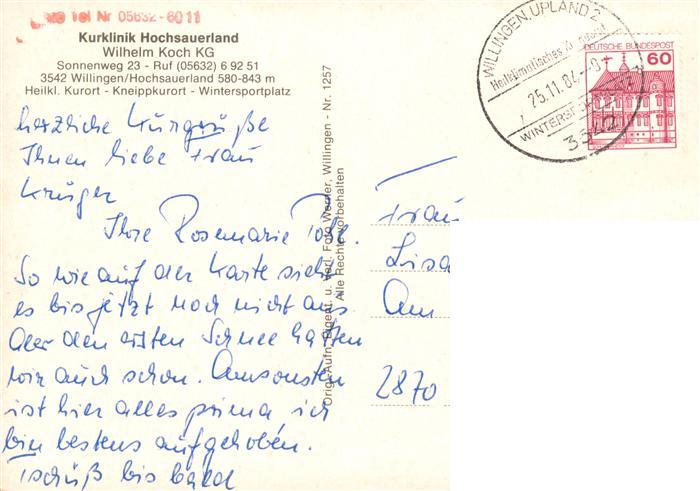 Tel Nr 05632-6011
Kurklinik Hochsauerland
Wilhelm Koch KG
Sonnenweg 23 - Ruf (05632) 6 92 51
3542 Willingen/Hochsauerland 580-843 m
Heilkl. Kurort - Kneippkurort - Wintersportplatz
herzliche Kurgrüße
Ihnen liebe Frau
Krüger
Ihre Rosemarie
So wie auf der Karte sieht
es bis jetzt noch nicht aus.
Aber den ersten Schnee hatten
wir auch schon. Ansonsten
ist hier alles prima ich
bin bestens aufgehoben.
Tschüß bis bald
Orig.-Aufn., Eigent. u. Verl. Foto Werner, Willingen - Nr. 1257
Alle Rechte vorbehalten
WILLINGEN, UPLAND 2
Heilklimatisches
25.11.84
WINTERSPORTPLATZ
3542
DEUTSCHE BUNDESPOST
60
Frau
Lisa
Am
2870